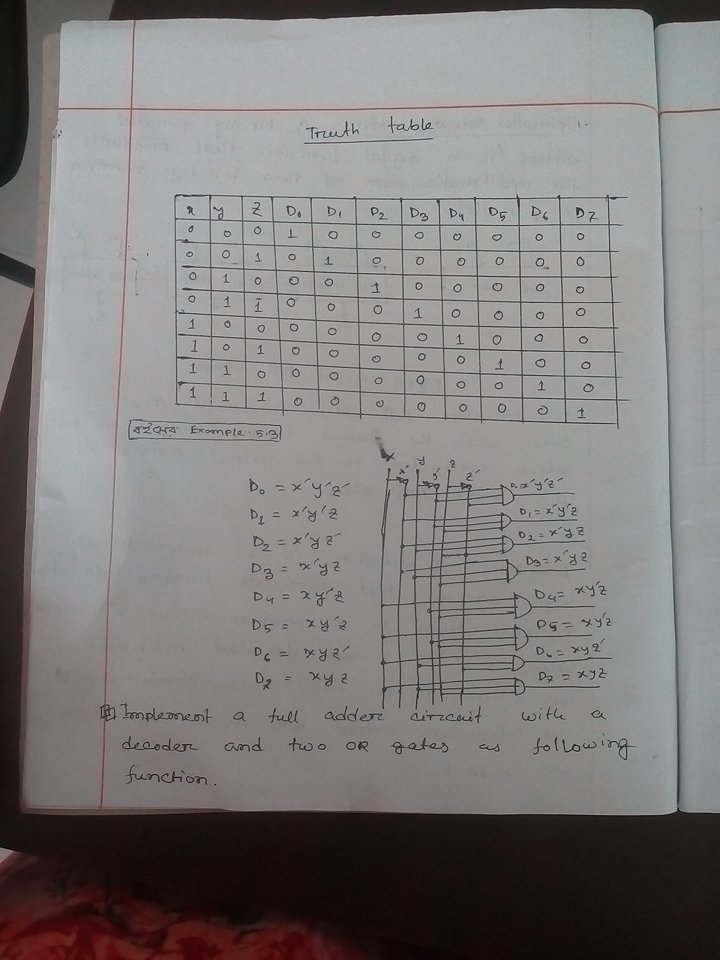 Truth table
x y z D₀ D₁ D₂ D₃ D₄ D₅ D₆ D₇
0 0 0 1 0 0 0 0 0 0 0
0 0 1 0 1 0 0 0 0 0 0
0 1 0 0 0 1 0 0 0 0 0
0 1 1 0 0 0 1 0 0 0 0
1 0 0 0 0 0 0 1 0 0 0
1 0 1 0 0 0 0 0 1 0 0
1 1 0 0 0 0 0 0 0 1 0
1 1 1 0 0 0 0 0 0 0 1
বইয়ের Example. 5.3
D₀ = x'y'z'
D₁ = x'y'z
D₂ = x'yz'
D₃ = x'yz
D₄ = xy'z
D₅ = xy'z
D₆ = xyz'
D₇ = xyz
x x' y y' z z'
D₀ x'y'z'
D₁ = x'y'z
D₂ = x'yz
D₃ = x'yz
D₄ = xy'z
D₅ = xy'z
D₆ = xyz'
D₇ = xyz
Implement a full adder circuit with a
decoder and two OR gates as following
function.